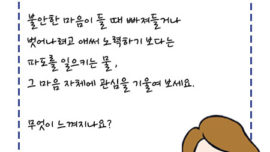 불안한 마음이 들 때 빠져들거나
벗어나려고 애써 노력하기 보다는
파도를 일으키는 물,
그 마음 자체에 관심을 기울여 보세요.
무엇이 느껴지나요?